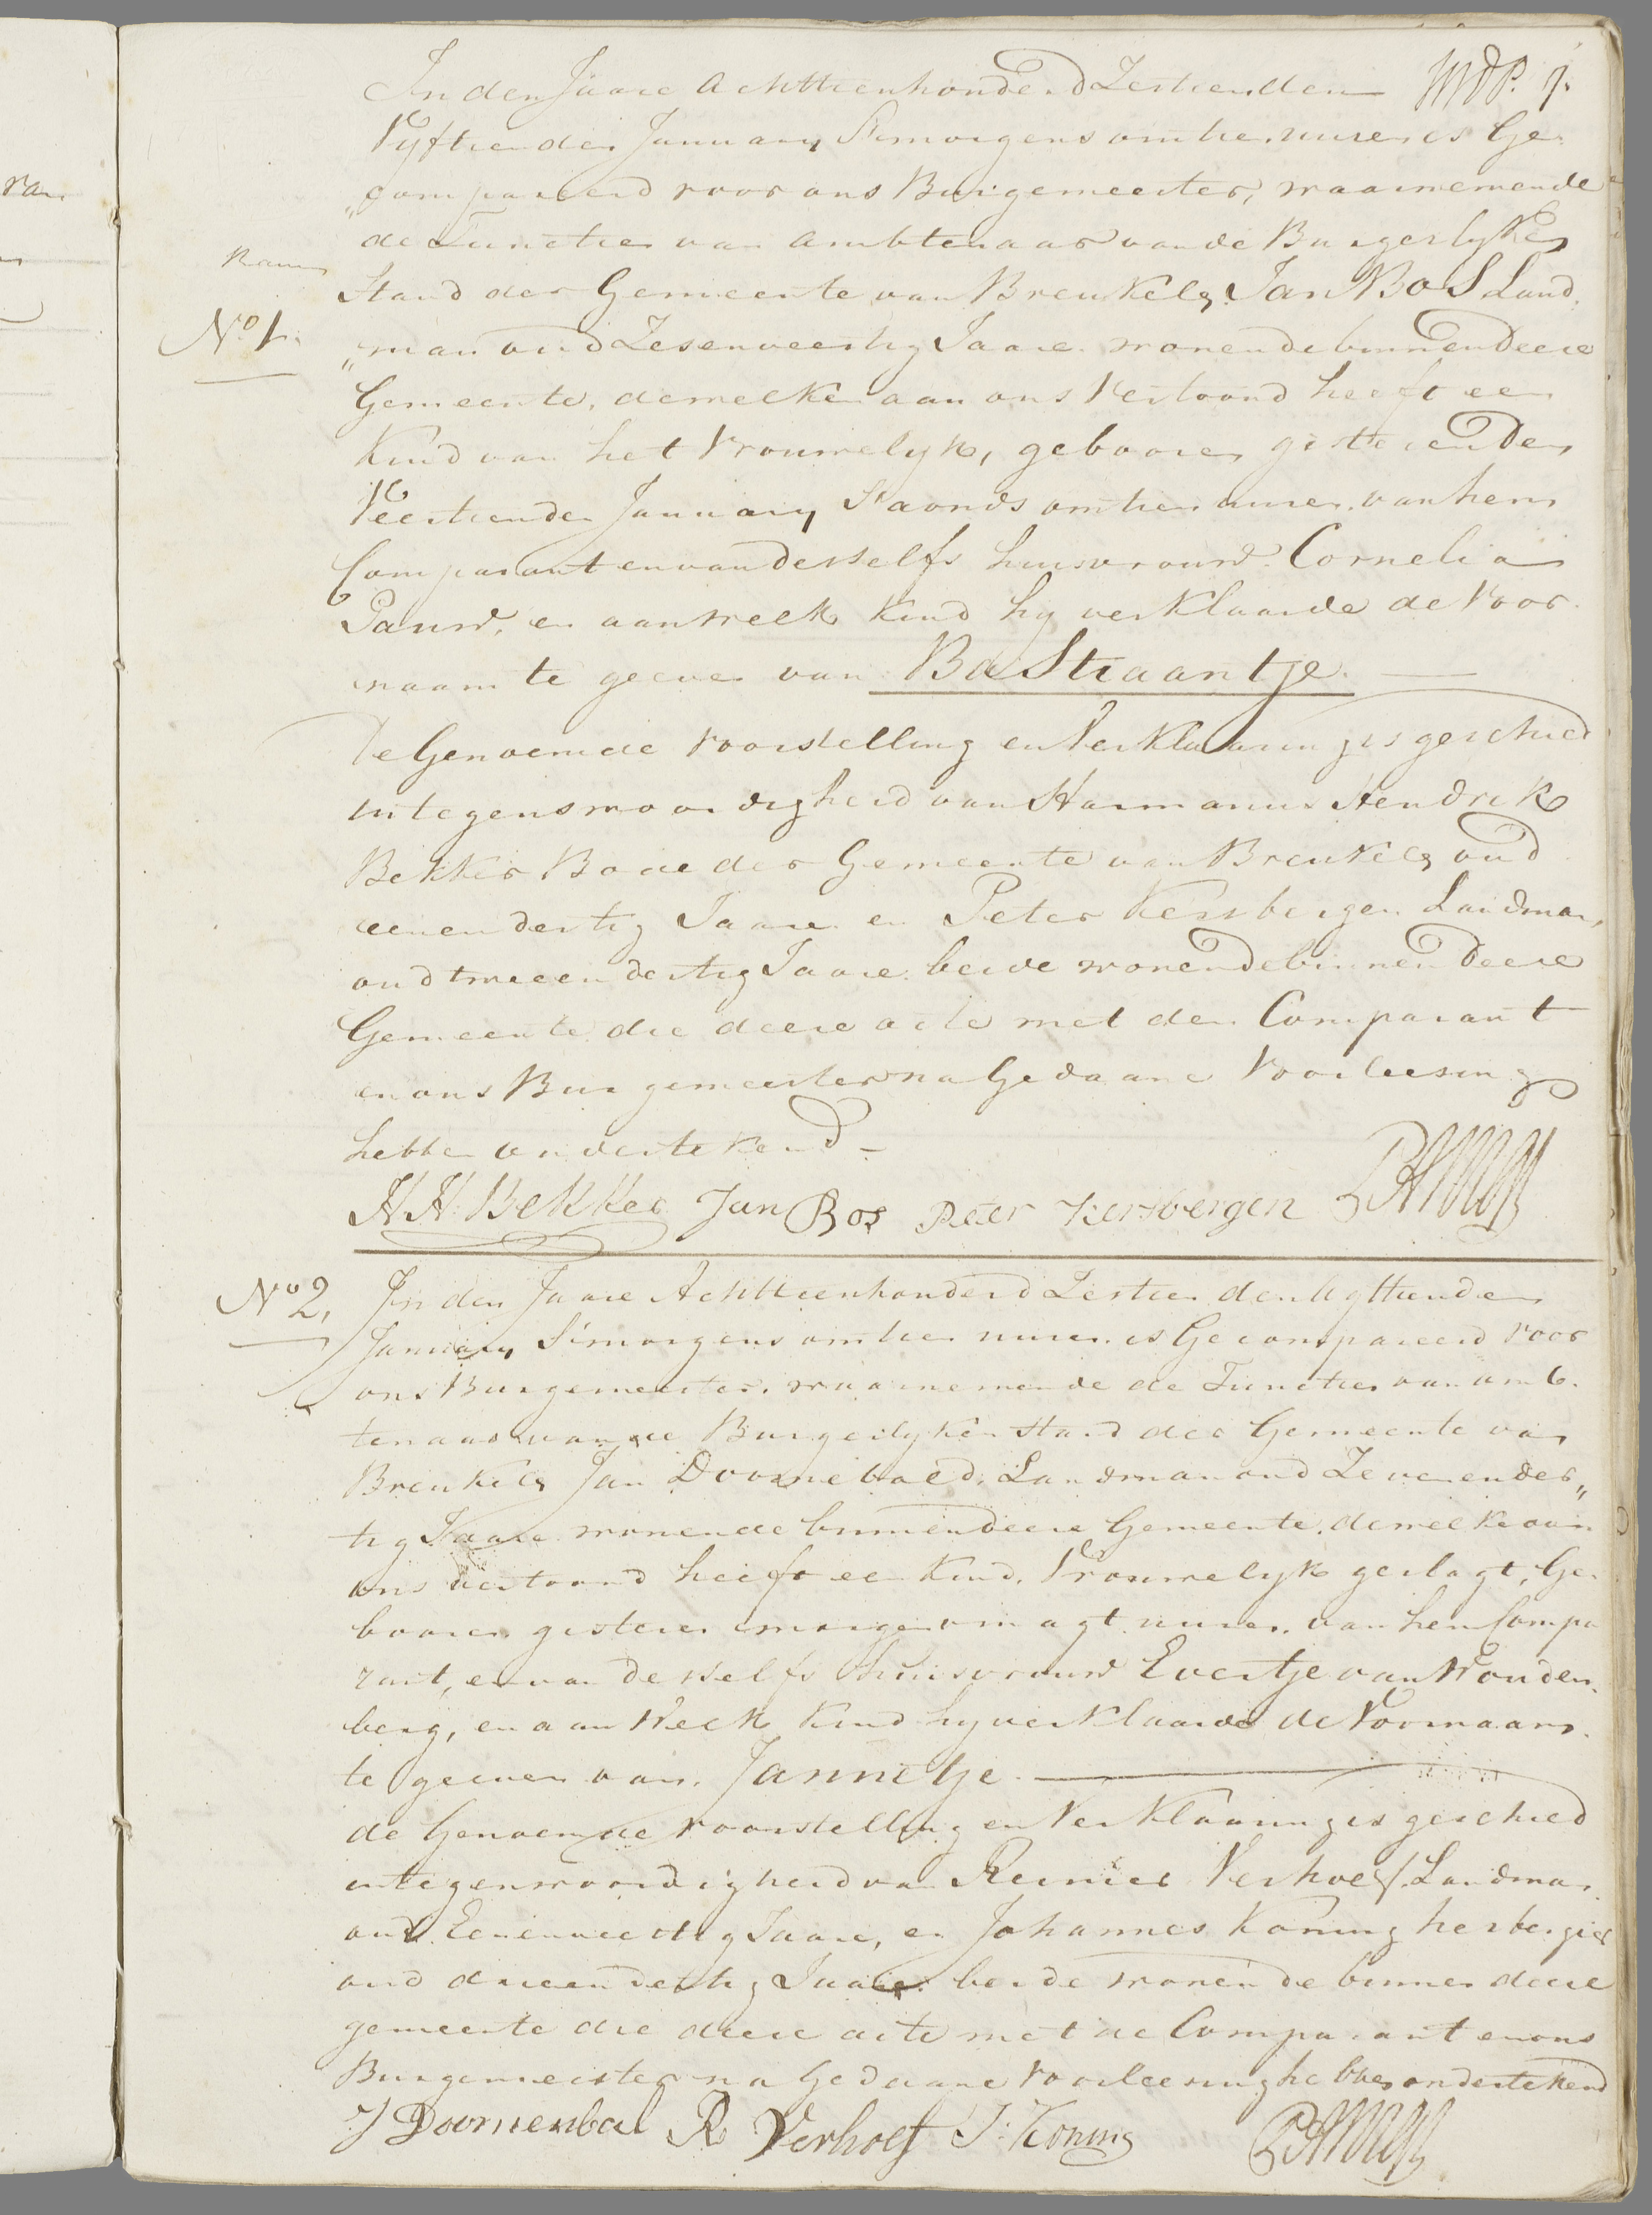 In den Jaare Achttienhonderd Zestien den
Vyftienden January Smorgens om tien uuren is Ge-
„compareerd voor ons Burgemeester, waarnemende
de Functien van Ambtenaar van de Burgerlyken
Stand der Gemeente van Breukelen Jan Bos Land
No 1.
„man oud Zesenveertig Jaare wonende binnen deere
Gemeente, dewelken aan ons Vertoond heeft een
Kind van het Vrouwelyk, gebooren gisteren den
Veertienden January S'avonds om tien uuren van hem
Comparant en van desselfs huisvrouw Cornelia
Pauw, en aan welk Kind hy verklaarde de Voor
naam te geeven van BaStiaantje.
De Genoemde Voorstelling en Verklaaring is geschied
in tegenswoordigheid van Harmanus Hendrik
Bekker Bode der Gemeente van Breukelen oud
eenendertig Jaare en Peter Kersbergen Landman,
oud tweeendertig Jaare beide wonende binnen deere
Gemeente die deere acte met den Comparant
en ons Burgemeester na Gedaane Voorleesing
hebben ondertekend
HH Bekker Jan Bos Peter Kersbergen
No 2,
In den Jaare Achttienhonderd Zestien den Agttienden
January S'morgens om tien uuren is Gecompareerd voor
ons Burgemeester, waarnemende de Functien van Amb.
tenaar van de Burgerlyken Stand der Gemeente van
Breukelen Jan Doornebaed, Landman oud Zevenender„
tig Jaare wonende binnen deere Gemeente, dewelke aan
ons Vertoond heeft een Kind, Vrouwelyk geslagt, Ge-
booren gisteren morgen om agt uuren van hem Compa
rant, en van desselfs Huisvrouw Evertje van Wouden,
berg, en aan Welk Kind hy verklaarde de Voornaam
te geeven van Jannetje.
de Genoemde Voorstelling en Verklaaring is geschied
in tegenwoordigheid van Reinier Verhoef, Landman
oud Eenenveertig Jaare, en Johannes Koning herbergier
oud drieendertig Jaare beide wonende binnen deere
gemeente die deere acte met de Comparant en ons
Burgemeester na Gedaane Voorleesing hebben ondertekend
J Doornenbal R Verhoef J. Koning